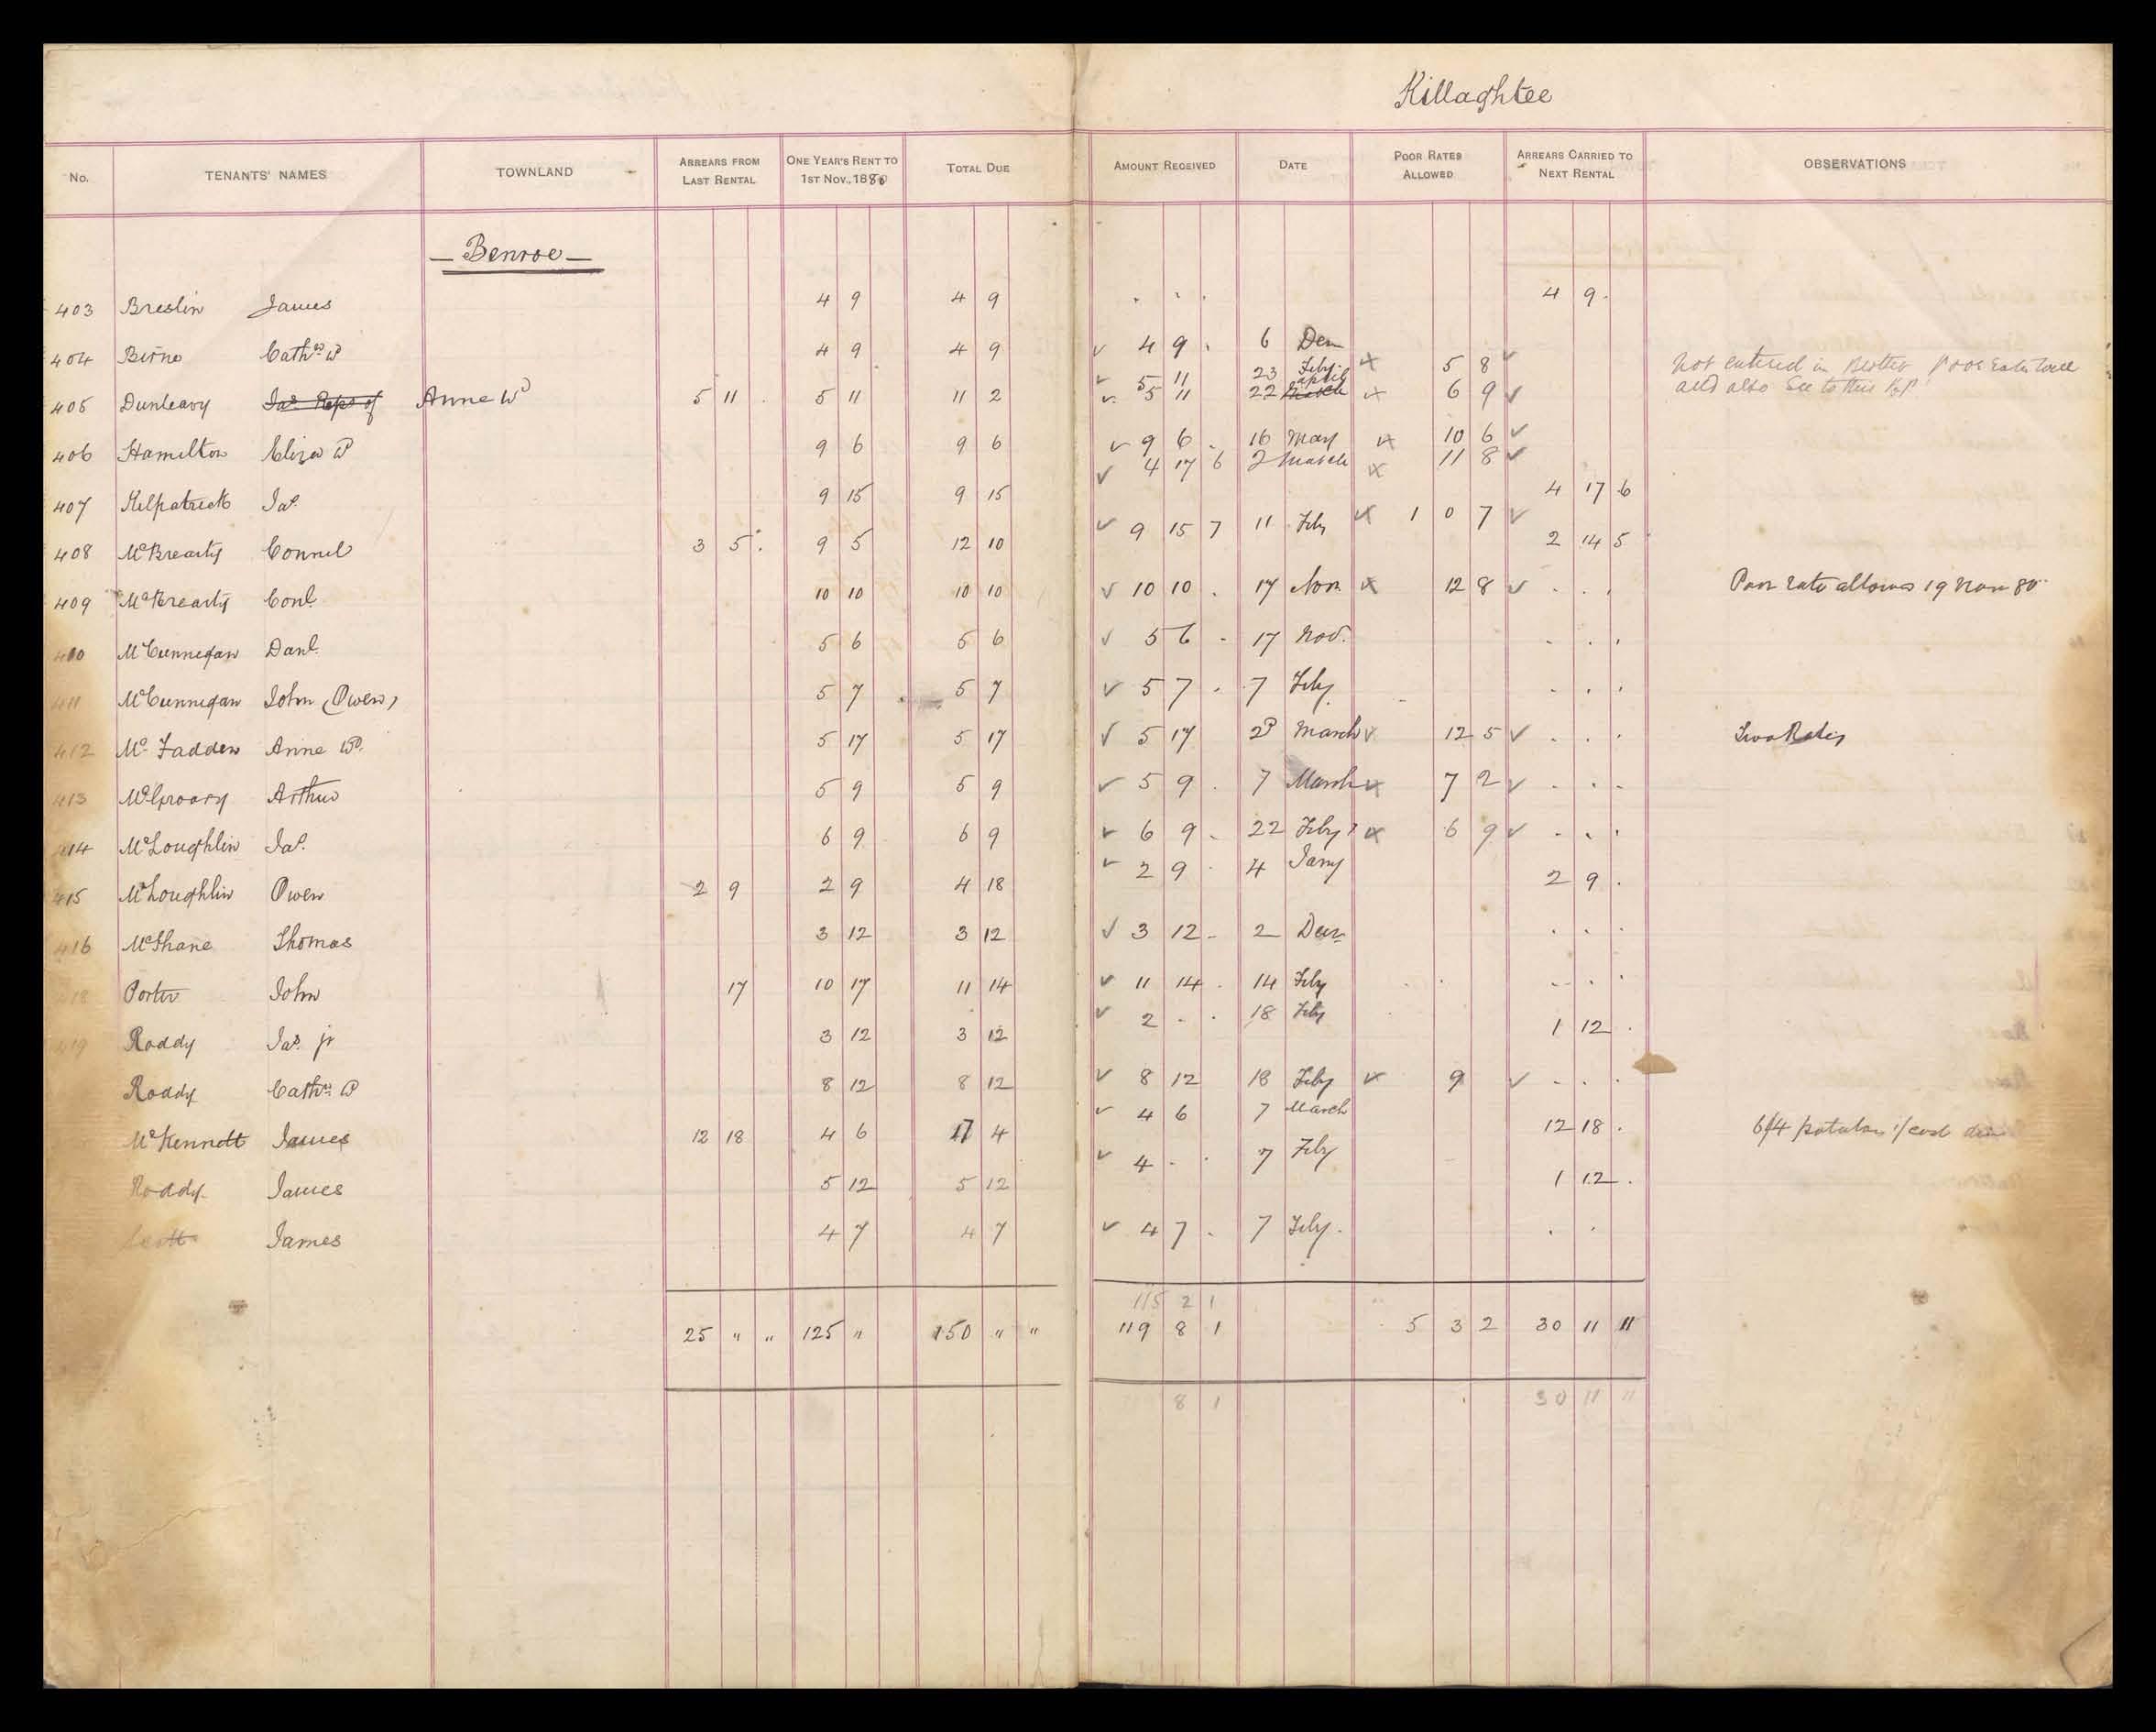 Killaghtee
No. TENANTS' NAMES TOWNLAND ARREARS FROM LAST RENTAL ONE YEAR'S RENT TO 1ST NOV., 1880 TOTAL DUE AMOUNT RECEIVED DATE POOR RATES ALLOWED ARREARS CARRIED TO NEXT RENTAL OBSERVATIONS
— Benroe —
403 Breslin James 4 9 4 9 . . . 4 9 .
404 Birne Cathne Wd 4 9 4 9 ✓ 4 9 . 6 Decr
✓ 5 11 23 Feby ✓ 5 8 ✓ not entered in Poor Rate
405 Dunleavy Jas Reps of Anne Wd 5 11 . 5 11 11 2 ✓ 5 11 22 March april ✓ 6 9 ✓ and also See to this
406 Hamilton Eliza Wd 9 6 9 6 ✓ 9 6 . 16 May ✓ 10 6 ✓
✓ 4 17 6 2 March ✓ 11 8 ✓
407 Kilpatrick Jas 9 15 9 15 4 17 6
✓ 9 15 7 11 Feby ✓ 1 0 7 ✓
408 McBrearty Connel 3 5 . 9 5 12 10 2 14 5
409 McBrearty Conl 10 10 10 10 ✓ 10 10 . 17 Nov. ✓ 12 8 ✓ . . . Poor rate allowed 19 Nov 80
410 McCunnegan Danl 5 6 5 6 ✓ 5 6 - 17 Nov. . . .
411 McCunnegan John (Owen) 5 7 5 7 ✓ 5 7 . 7 Feby . . .
412 Mc Fadden Anne Wd 5 17 5 17 ✓ 5 17 2d March ✓ 12 5 ✓ . . . Two Rates
413 McGroary Arthur 5 9 5 9 ✓ 5 9 . 7 March ✓ 7 2 ✓ . . .
414 McLoughlin Jas 6 9 6 9 ✓ 6 9 . 22 Feby ✓ 6 9 ✓ . . .
✓ 2 9 . 4 Jany
415 McLoughlin Owen 2 9 2 9 4 18 2 9 .
416 McShane Thomas 3 12 3 12 ✓ 3 12 - 2 Decr . . .
418 Porter John 17 10 17 11 14 ✓ 11 14 . 14 Feby . . .
✓ 2 . . 18 Feby
419 Roddy Jas jr 3 12 3 12 1 12 .
Roddy Cathne Wd 8 12 8 12 ✓ 8 12 18 Feby ✓ 9 ✓ . . .
✓ 4 6 7 March
McKennett James 12 18 4 6 17 4 12 18 . 6/4 potatoes
✓ 4 . . 7 Feby
Roddy James 5 12 5 12 1 12 .
Scott James 4 7 4 7 ✓ 4 7 . 7 Feby . . .
115 2 1
25 " " 125 " 150 " " 119 8 1 5 3 2 30 11 11
8 1 30 11 11